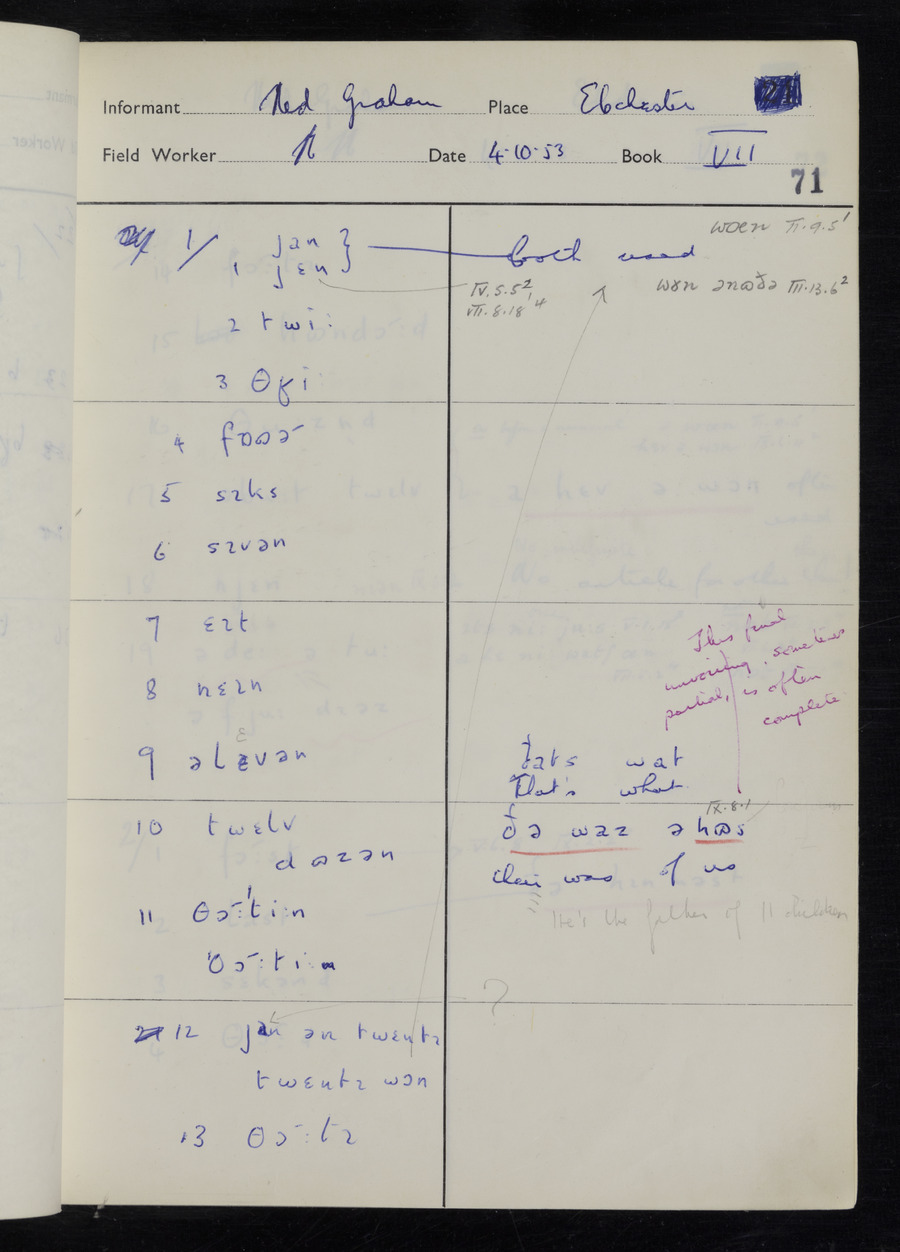 Informant Ned Graham Place Ebchester
Field Worker Date 4-10-53 Book VII
71
1/ jan
1 jɛn } both used
wɒɛn II.9.5¹
wɤn ənɒðə III.13.6²
IV.5.5²
VII.8.18¹ 4
2 twiː
3 θʁiː
4 fɒɒə
5 sɪks
6 sɪvən
7 ɛɪt
8 nɛɪn
This final
unvoicing, sometimes
partial, is often
complete
9 əlɛvən
ðats wat
That's what
10 twɛlv
dɒzən
IX.8.1
ðə waz ə hɒs
their was of us
11 θɔːˈtiːn
ˈθɔːtiːn
He's the father of 11 children
?
12 jan ən twɛntɪ
twɛntɪ wɔn
13 θɔːtɪ